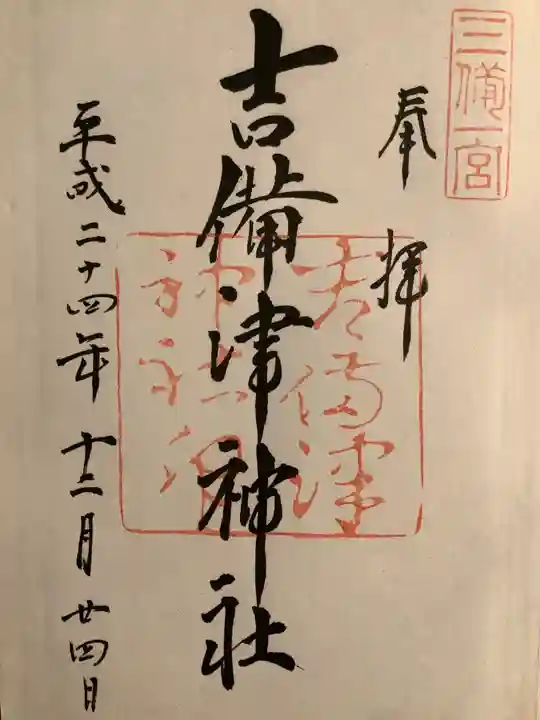 三備一宮
奉拝
吉備津神社
吉備津
神社印
平成二十四年十二月廿四日